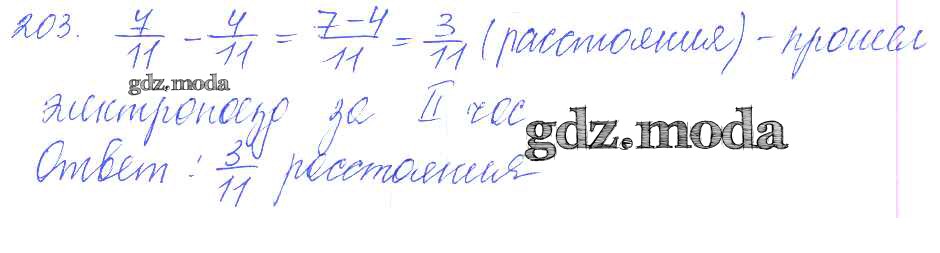 203. 7/11 - 4/11 = 7-4/11 = 3/11 (расстояния) - прошел
gdz.moda
электропоезд за II час
gdz.moda
Ответ: 3/11 расстояния